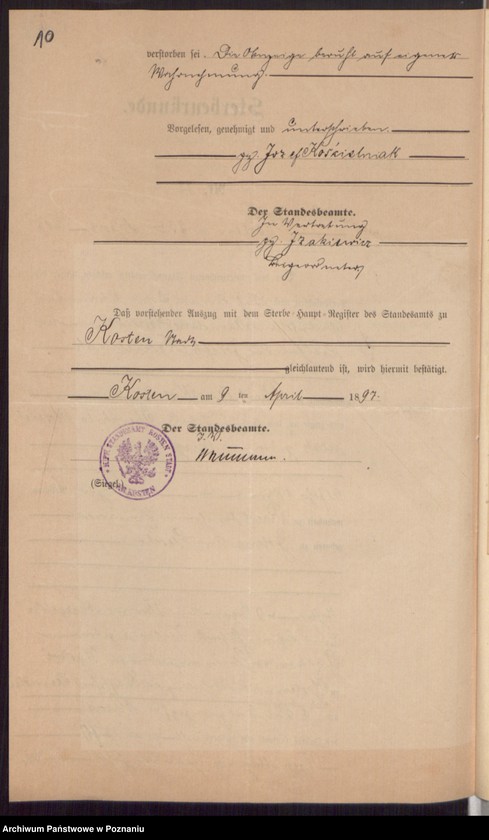 10
verstorben sei. Die Anzeige beruht auf eigener
Wahrnehmung.
Vorgelesen, genehmigt und unterschrieben.
gez. Jozef Kościelniak
Der Standesbeamte.
In Vertretung
gez.
Beigeordneter
Daß vorstehender Auszug mit dem Sterbe-Haupt-Register des Standesamts zu
Kosten Stadt
gleichlautend ist, wird hiermit bestätigt.
Kosten am 9 ten April 1897.
Der Standesbeamte.
J. V.
(Siegel)
Archiwum Państwowe w Poznaniu